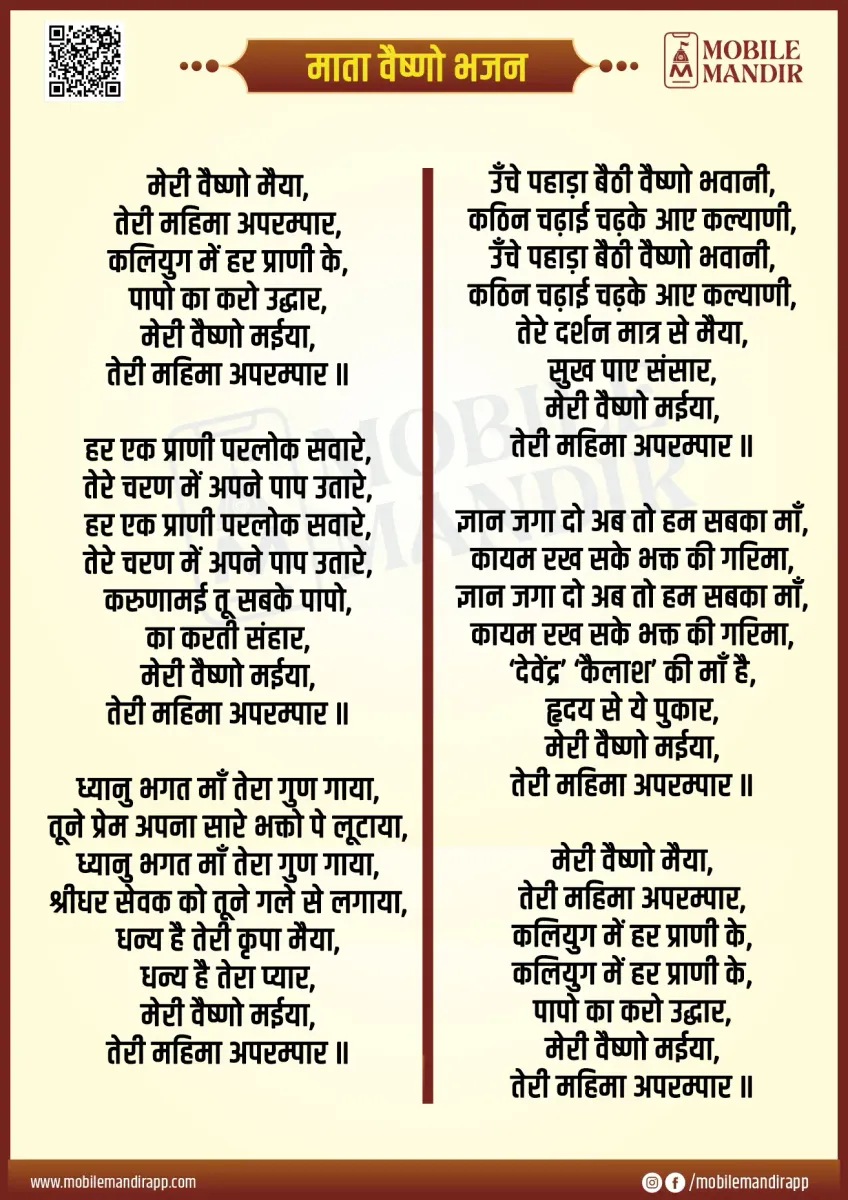 माता वैष्णो भजन
MOBILE
MANDIR
मेरी वैष्णो मैया,
तेरी महिमा अपरम्पार,
कलियुग में हर प्राणी के,
पापो का करो उद्धार,
मेरी वैष्णो मईया,
तेरी महिमा अपरम्पार ॥
हर एक प्राणी परलोक सवारे,
तेरे चरण में अपने पाप उतारे,
हर एक प्राणी परलोक सवारे,
तेरे चरण में अपने पाप उतारे,
करुणामई तू सबके पापो,
का करती संहार,
मेरी वैष्णो मईया,
तेरी महिमा अपरम्पार ॥
ध्यानु भगत माँ तेरा गुण गाया,
तूने प्रेम अपना सारे भक्तो पे लूटाया,
ध्यानु भगत माँ तेरा गुण गाया,
श्रीधर सेवक को तूने गले से लगाया,
धन्य है तेरी कृपा मैया,
धन्य है तेरा प्यार,
मेरी वैष्णो मईया,
तेरी महिमा अपरम्पार ॥
उँचे पहाड़ा बैठी वैष्णो भवानी,
कठिन चढ़ाई चढ़के आए कल्याणी,
उँचे पहाड़ा बैठी वैष्णो भवानी,
कठिन चढ़ाई चढ़के आए कल्याणी,
तेरे दर्शन मात्र से मैया,
सुख पाए संसार,
मेरी वैष्णो मईया,
तेरी महिमा अपरम्पार ॥
ज्ञान जगा दो अब तो हम सबका माँ,
कायम रख सके भक्त की गरिमा,
ज्ञान जगा दो अब तो हम सबका माँ,
कायम रख सके भक्त की गरिमा,
‘देवेंद्र’ ‘कैलाश’ की माँ है,
हृदय से ये पुकार,
मेरी वैष्णो मईया,
तेरी महिमा अपरम्पार ॥
मेरी वैष्णो मैया,
तेरी महिमा अपरम्पार,
कलियुग में हर प्राणी के,
कलियुग में हर प्राणी के,
पापो का करो उद्धार,
मेरी वैष्णो मईया,
तेरी महिमा अपरम्पार ॥
MOBILE
MANDIR
www.mobilemandirapp.com
/mobilemandirapp